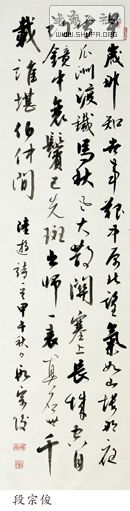 早歲那知世事艱中原北望氣如山樓船夜
雪瓜洲渡鐵馬秋風大散關塞上長城空自
許鏡中衰鬢已先斑出師一表真名世千
載誰堪伯仲間
陸游詩甲午秋段宗俊
段宗俊